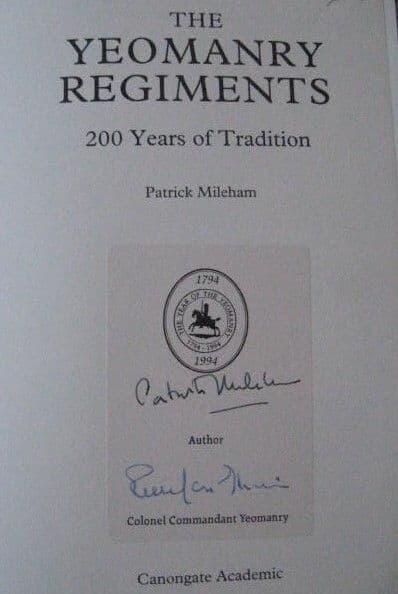 THE
YEOMANRY
REGIMENTS
200 Years of Tradition
Patrick Mileham
1794
THE YEAR OF THE YEOMANRY
1794-1994
1994
Patrick Mileham
Author
Colonel Commandant Yeomanry
Canongate Academic